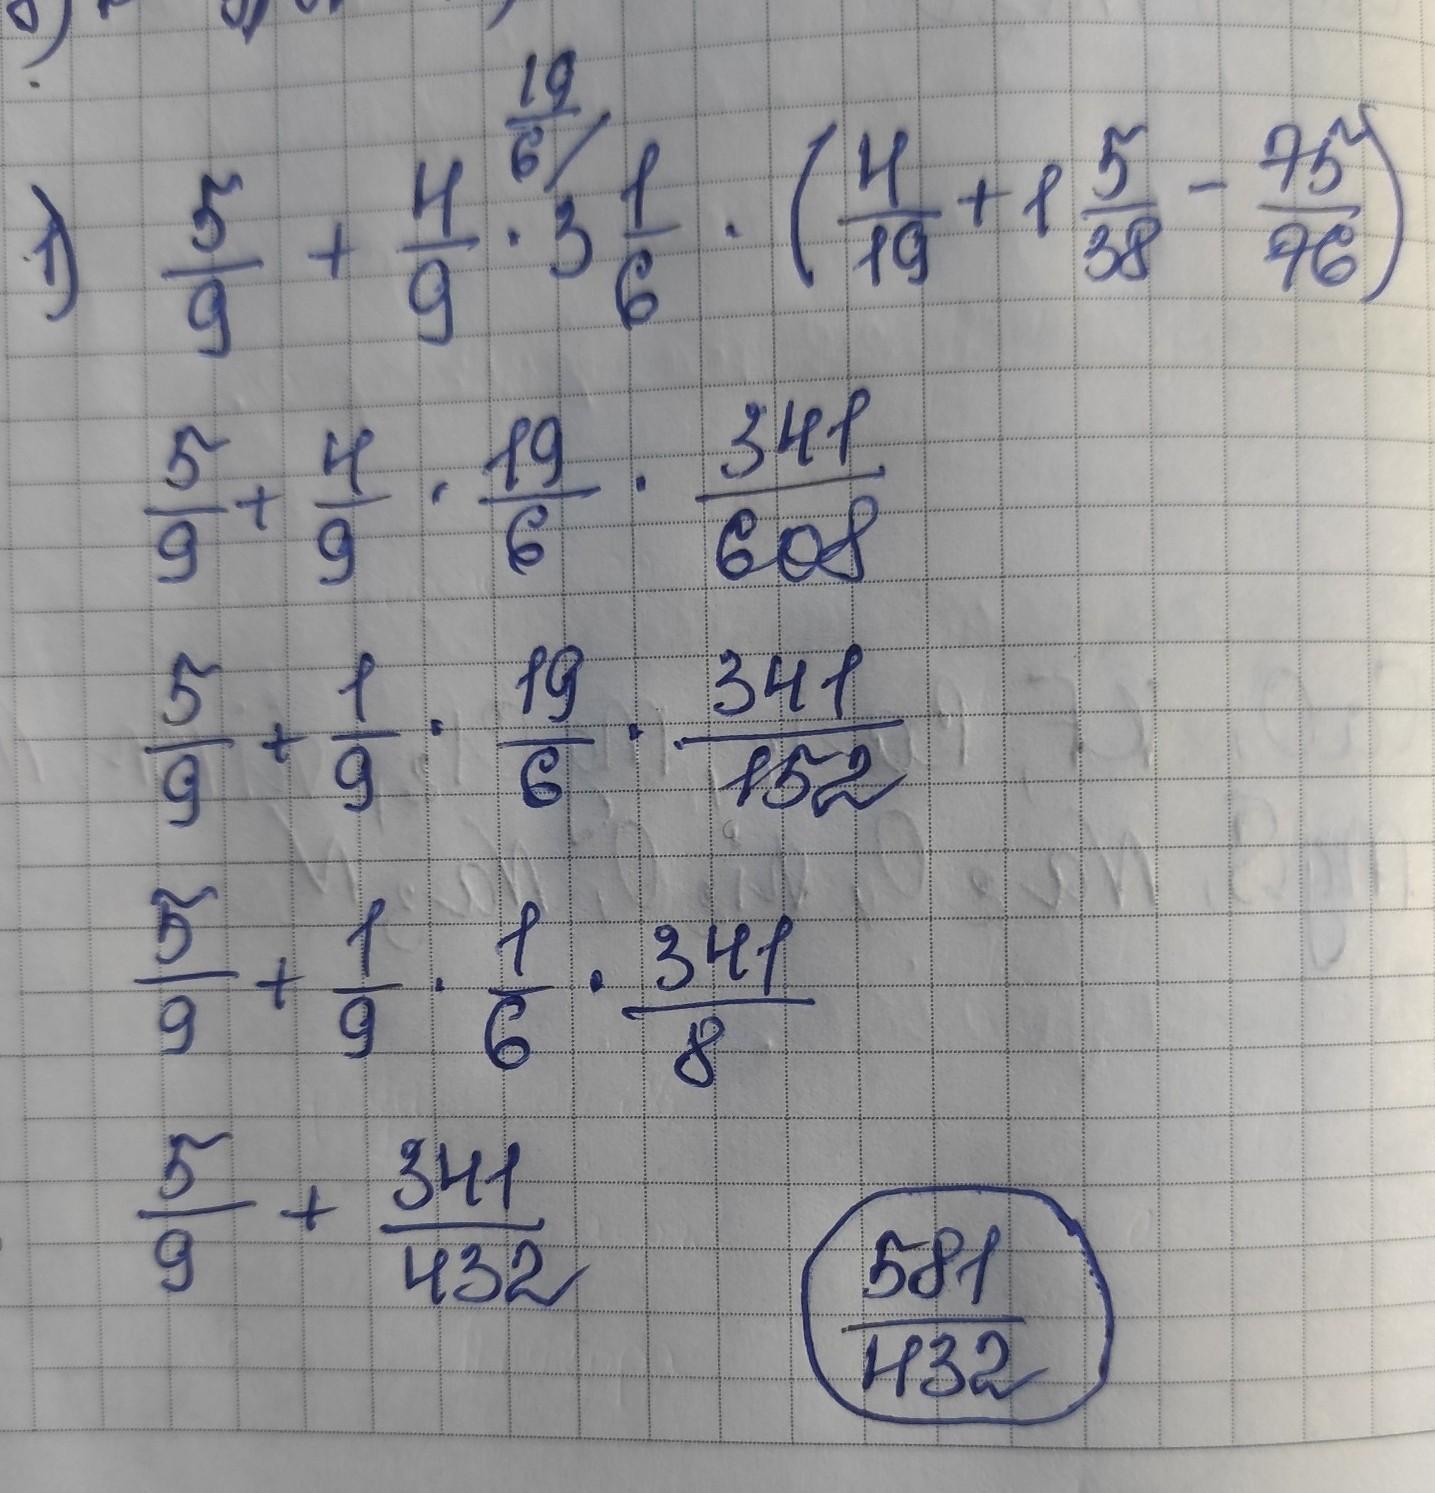 1) 5/9 + 4/9 · 3 1/6 19/6 · (4/19 + 1 5/38 - 75/96)
5/9 + 4/9 · 19/6 · 341/608
5/9 + 1/9 · 19/6 · 341/152
5/9 + 1/9 · 1/6 · 341/8
5/9 + 341/432
581/432